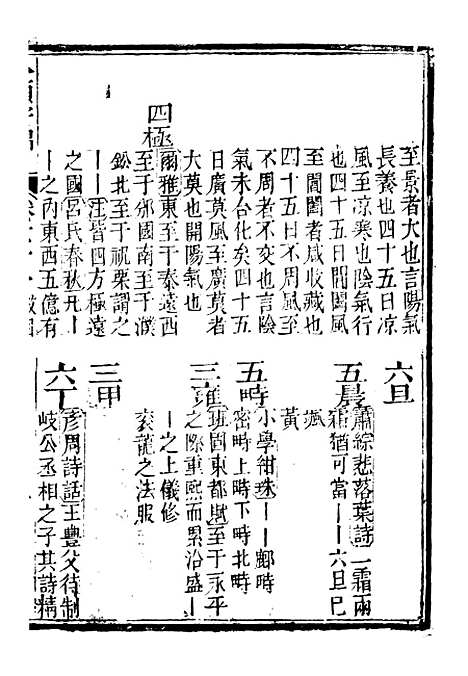 至景者大也言陽氣
長養也四十五日凉
風至凉寒也陰氣行
也四十五日閶闔風
至閶闔者咸收藏也
四十五日不周風至
不周者不交也言陰
氣未合化矣四十五
日廣莫風至廣莫者
大莫也開陽氣也
四極
爾雅東至于泰遠西
至于邠國南至于濮
鈆北至于祝栗謂之
丨丨注皆四方極遠
之國呂氏春秋凡丨
丨之內東西五億有
六旦
五晨
蕭綜悲落葉詩一霜兩
霜猶可當丨丨六旦已
颯
黃
五時
小學紺珠丨丨鄜時
密時上時下時北時
三雍
班固東都賦至于永平
之際重熙而累洽盛丨
丨之上儀修
衮龍之法服
三甲
六丁
彥周詩話王豐父待制
岐公丞相之子其詩精